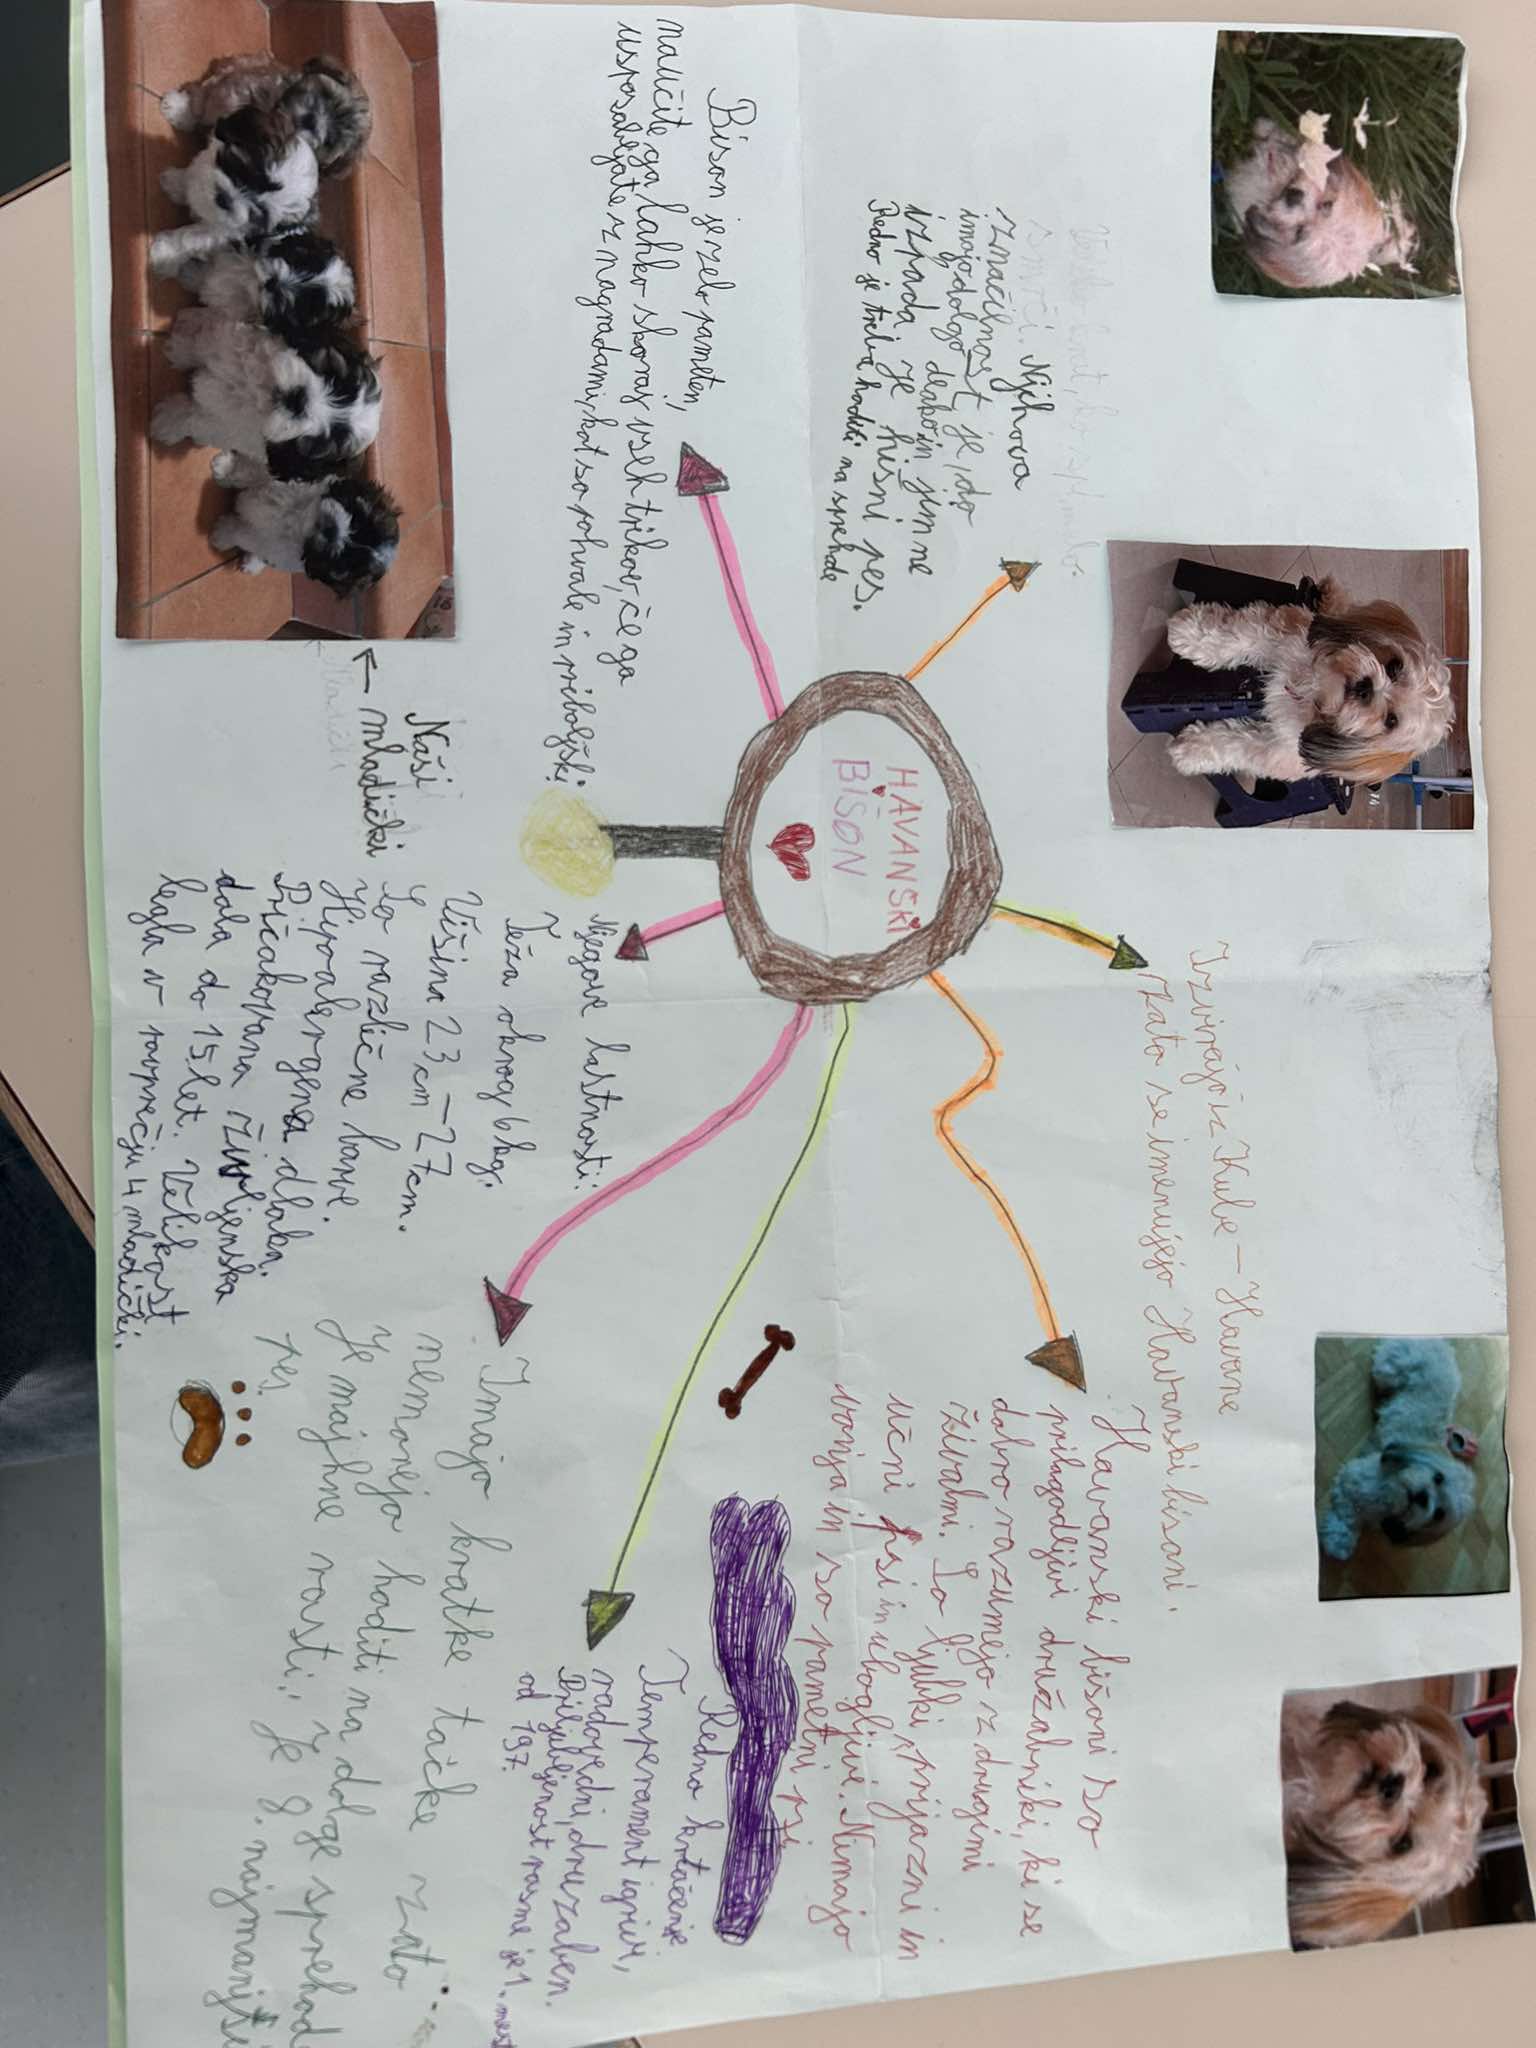 HAVANSKI
BISON
Njihova
značilnost je, da
imajo dolgo dlako in jim ne
izpada. Je hišni pes.
Redno je treba hoditi na sprehode
Izvirajo iz Kube – Havane
Zato se imenujejo Havanski bisoni.
Havanski bišoni so
prilagodljivi družabniki, ki se
dobro razumejo z drugimi
živalmi. So ljubki, prijazni in
učni psi in ubogljivi. Nimajo
vonja in so pametni psi
Bison je zelo pameten,
naučite ga lahko skoraj vseh trikov, če ga
usposabljate z nagradami, kot so pohvale in priboljški.
Naši
← mladički
Njegove lastnosti:
Teža okrog 6 kg.
Višina 23 cm – 27 cm.
So različne barve.
Hipoalergena dlaka.
Pričakovana življenska
doba do 15 let. Velikost
legla v povprečju 4 mladički.
Redno krtačenje
Temperament igrivi,
radovedni, druzaben.
Priljubljenost pasme je 1. mest
od 197.
Imajo kratke tačke zato
nemorejo hoditi na dolge sprehod
Je majhne rasti. Je 8. najmanjši
pes.